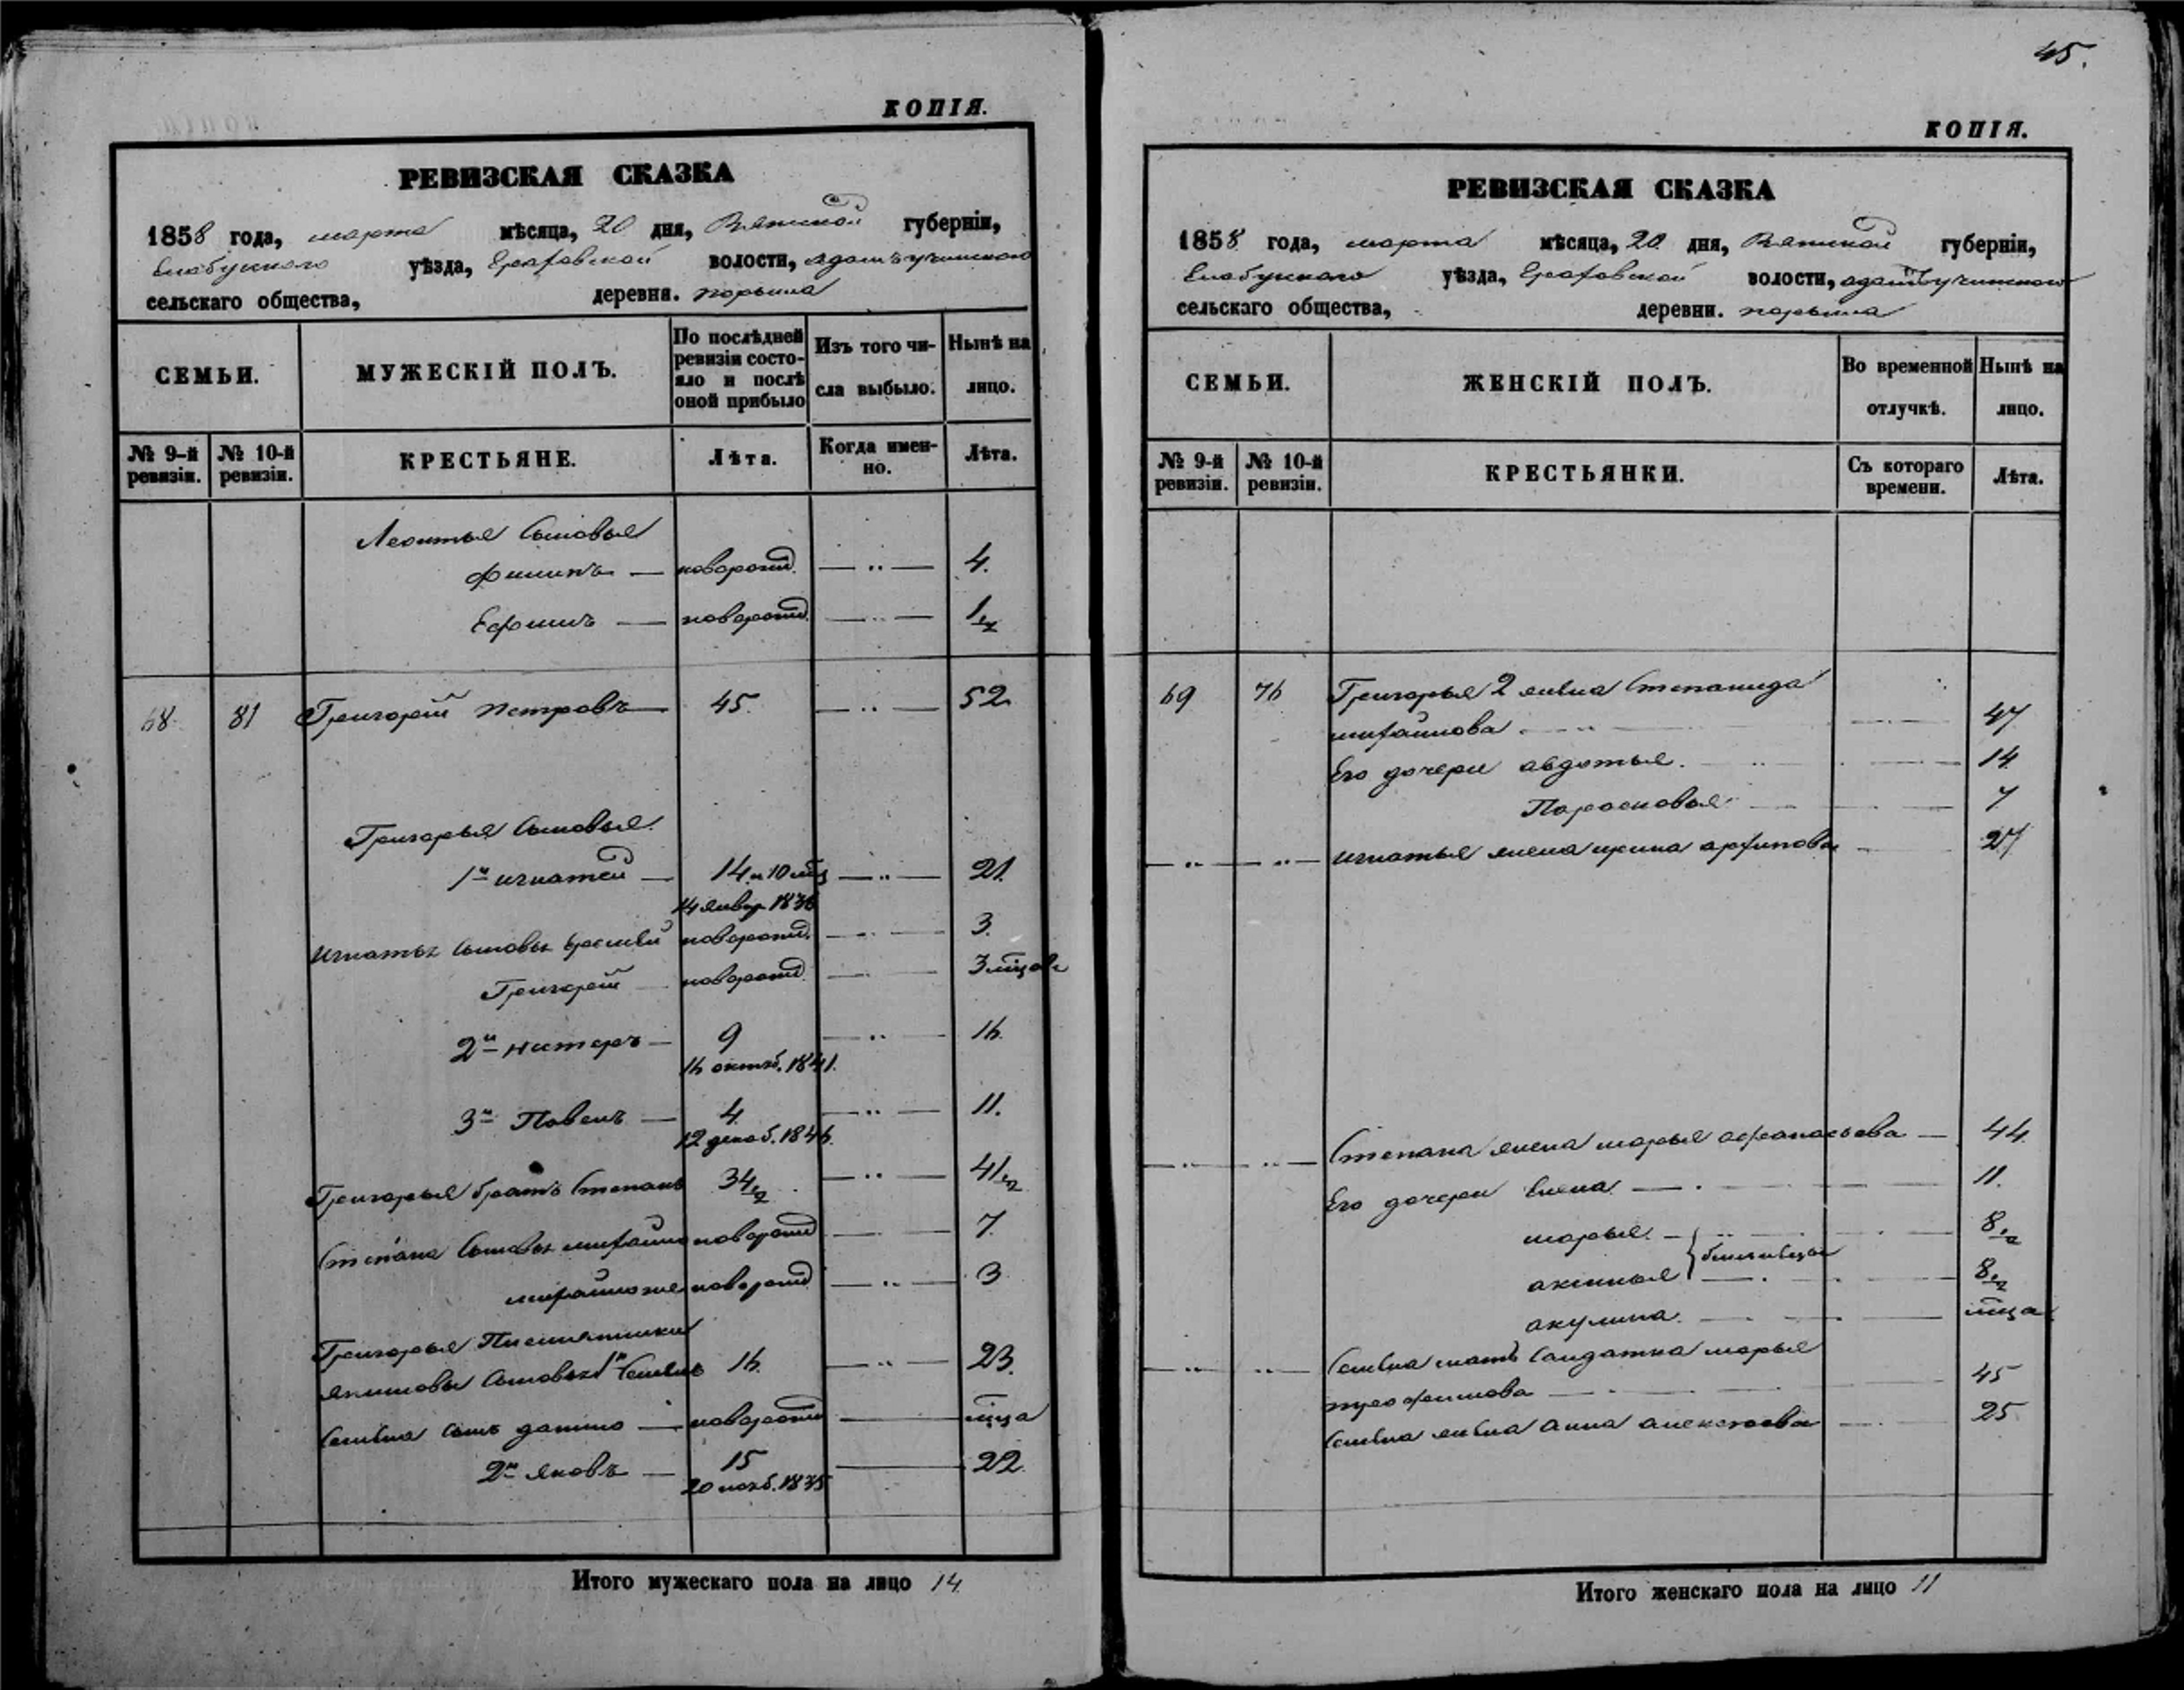 КОПІЯ.
РЕВИЗСКАЯ СКАЗКА
1858 года, марта мѣсяца, 20 дня, Вятской губерніи,
Елабужского уѣзда, Граховской волости,
сельскаго общества, деревни.
СЕМЬИ.
МУЖЕСКІЙ ПОЛЪ.
По послѣдней ревизіи состо-
яло и послѣ
оной прибыло
Изъ того чи-
сла выбыло.
Нынѣ на
лицо.
№ 9-й ревизіи.
№ 10-й ревизіи.
КРЕСТЬЯНЕ.
Лѣта.
Когда имен-
но.
Лѣта.
Леонтья сыновья
Филипъ — новорожд. — 〃 — 4.
Ефимъ — новорожд. — 〃 — 1 1/2
68. 81 Григорій Петровъ — 45. — 〃 — 52
Григорья сыновья.
1й Игнатей — 14 и 10 мѣс — 〃 — 21.
14 январ. 1836
Игнатья сыновья новорожд. — 3.
Григорій новорожд. — 3 мѣсяц
2й Нестеръ — 9 — 〃 — 16.
16 октяб. 1841.
3й Павелъ — 4. — 〃 — 11.
12 декаб. 1846.
Григорья братъ Степанъ 34 1/2 — 〃 — 41 1/2
Степана сыновья Михайло новорожд — 7.
Михайло же новорожд — 〃 — 3
Григорья Племянники
Якимовы сыновья 1й Семенъ 16. — 〃 — 23.
Семена сынъ Данило — новорожд — мѣсяца
2й Яковъ — 15 — 22.
20 нояб. 1835
Итого мужескаго пола на лицо 14
45.
КОПІЯ.
РЕВИЗСКАЯ СКАЗКА
1858 года, марта мѣсяца, 20 дня, Вятской губерніи,
Елабужского уѣзда, Граховской волости,
сельскаго общества, деревни.
СЕМЬИ.
ЖЕНСКІЙ ПОЛЪ.
Во временной
отлучкѣ.
Нынѣ на
лицо.
№ 9-й ревизіи.
№ 10-й ревизіи.
КРЕСТЬЯНКИ.
Съ котораго
времени.
Лѣта.
69 76 Григорья 2 жена Степанида
Михайлова 47
Его дочери Авдотья. 14.
Парасковья 7
— 〃 — 〃 — Игнатья жена Ирина Архипова 27
— 〃 — 〃 — Степана жена Марья Афанасьева — 44.
Его дочери Елена — 11.
Марья. 8 1/2
близнецы
Аксинья 8 1/2
Акулина. мѣсяца
— 〃 — 〃 — Семена мать Солдатка Марья
Трофимова — 45
Семена жена Анна Алексѣева 25
Итого женскаго пола на лицо 11